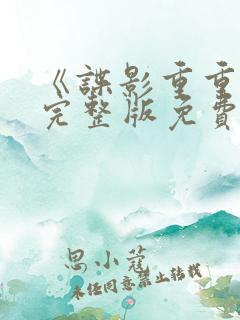 《谍影重重
完整版免费
思小蔻
未经同意禁止转载